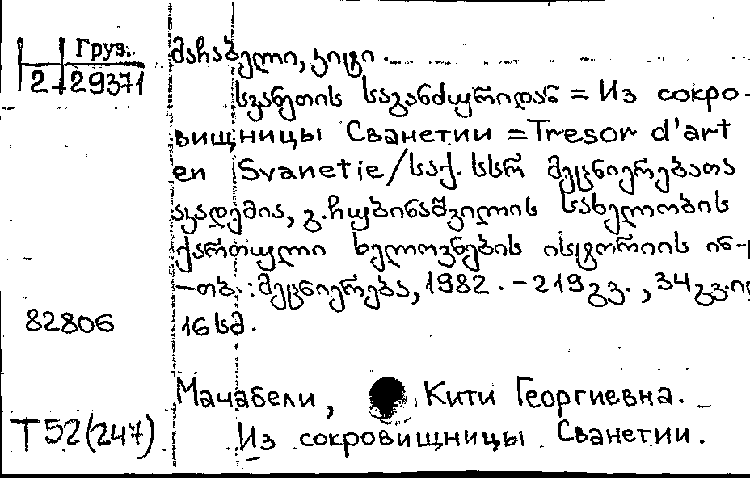 Груз.
2-29371
მაჩაბელი, კიტი.
სვანეთის საგანძურიდან = Из сокро-
вищницы Сванетии = Tresor d'art
en Svanetie/საქ. სსრ მეცნიერებათა
აკადემია, გ. ჩუბინაშვილის სახელობის
ქართული ხელოვნების ისტორიის ინ-
-თბ.: მეცნიერება, 1982. - 219გვ., 34გვ.
82806
16 სმ.
Мачабели, Кити Георгиевна.
T52(247)
Из сокровищницы Сванетии.